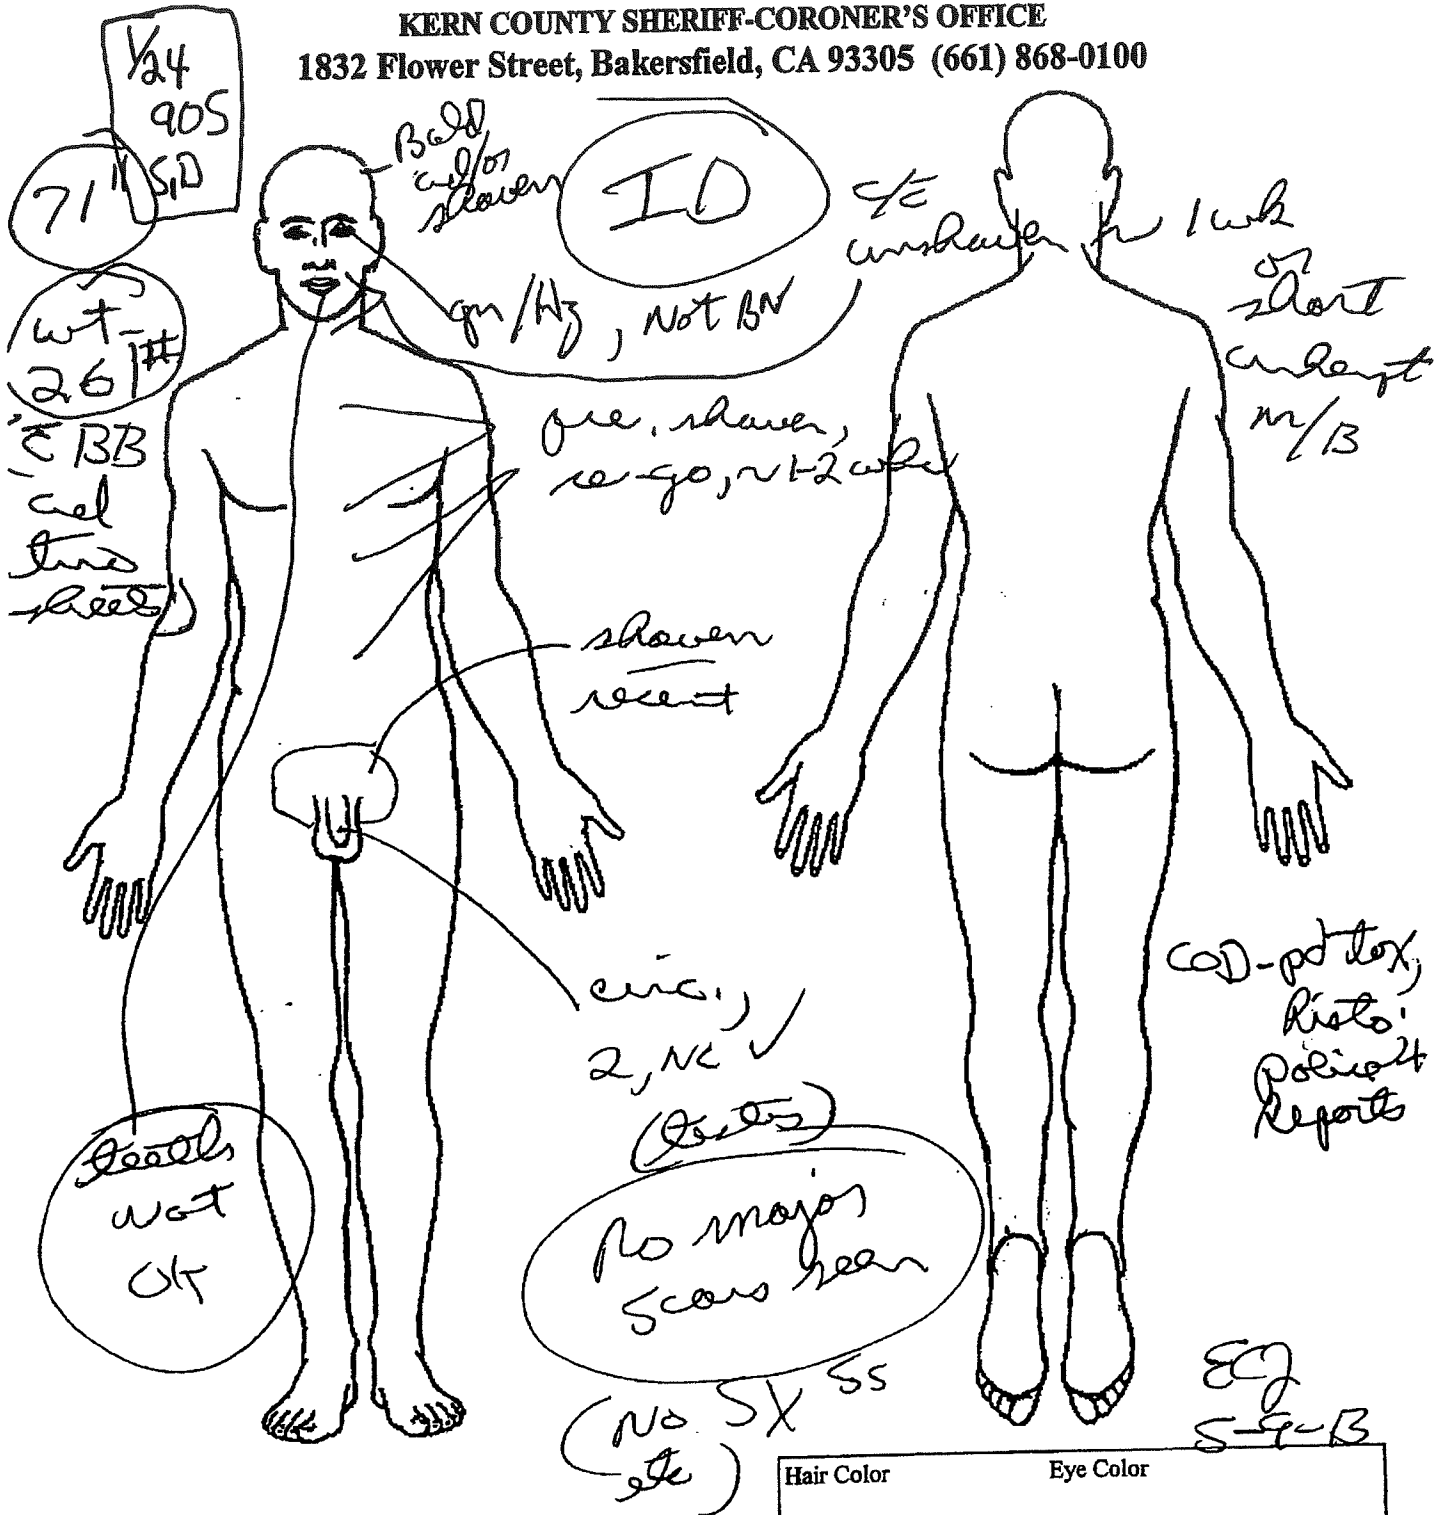 KERN COUNTY SHERIFF-CORONER'S OFFICE
1832 Flower Street, Bakersfield, CA 93305 (661) 868-0100
1/24
905
S,D
71"
wt-
261#
c̄ BB
and
two
sheets)
Bald
and/or
shaven
ID
c/c̄
unshaven 1 wk
or
short
unkempt
m/B
gn/Hz, Not BN
pre. shaven,
re-go, ~1-2 wks
shaven
recent
circ.,
2, NL ✓
(testes)
COD-pd tox,
histo.
police
Reports
teeth
wat
OK
No major
scars seen
(No SX SS
etc)
ECJ
5-9-13
Hair Color
Eye Color